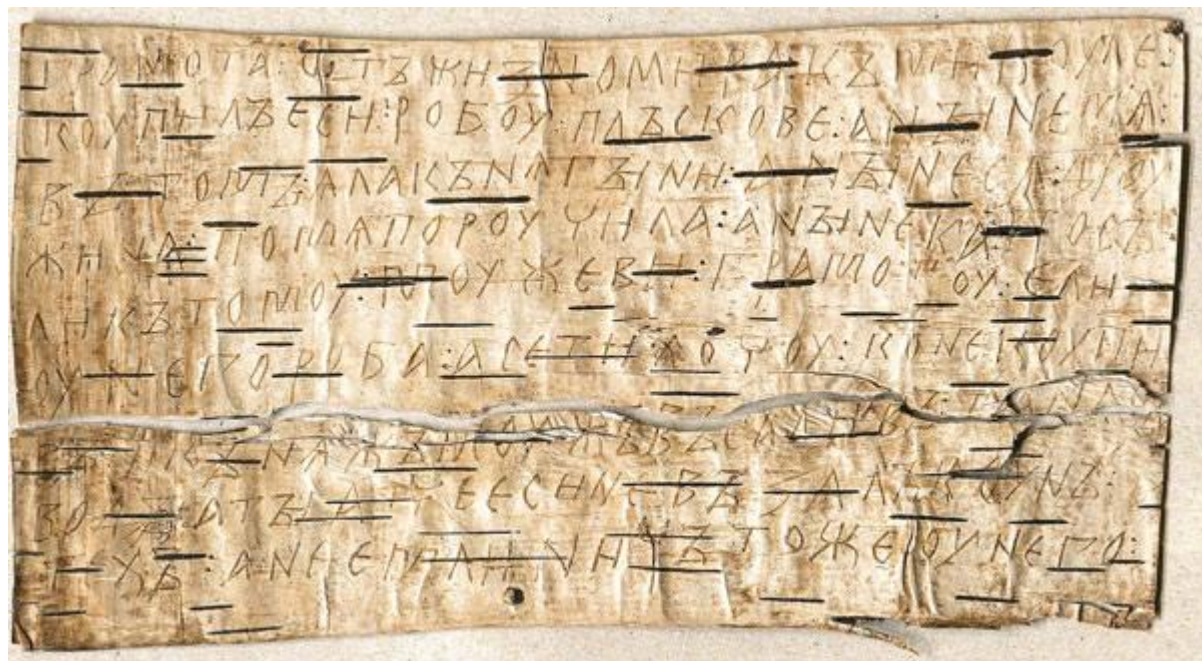 ГРАМОТА:ѠТЪЖИЗНОМИРАКЪМИКОУЛЕ:
КОУПИЛЪЕСИ:РОБОУ:ПЛЪСКОВЕ:АНЪІНЕМѦ:
ВЪТОМЪ:АЛАКЪНѦГЪІНИ:АНЪІНЕСѦ:ДРОУ
ЖИНА:ПОМѦПОРОУЧИЛА:АНЪІНЕКА:ПОСЪ
ЛИКЪТОМОУ:МОУЖЕВИ:ГРАМОТОУ:ЕЛИ
ОУНЕГОРОБА:АСЕТИХОЧОУ:КОНЕКОУПИ
ВЪ:ИКЪНѦЖЪМОУЖЪВЪСАДИВЪ:ТАНАСЪ
ВОДЪ:АТЪІАТЧЕЕСИНЕВЪЗАЛЪКОУНЪ:
ТЕХЪ:АНЕЕМЛИ:НИЧЪТОЖЕОУНЕГО: